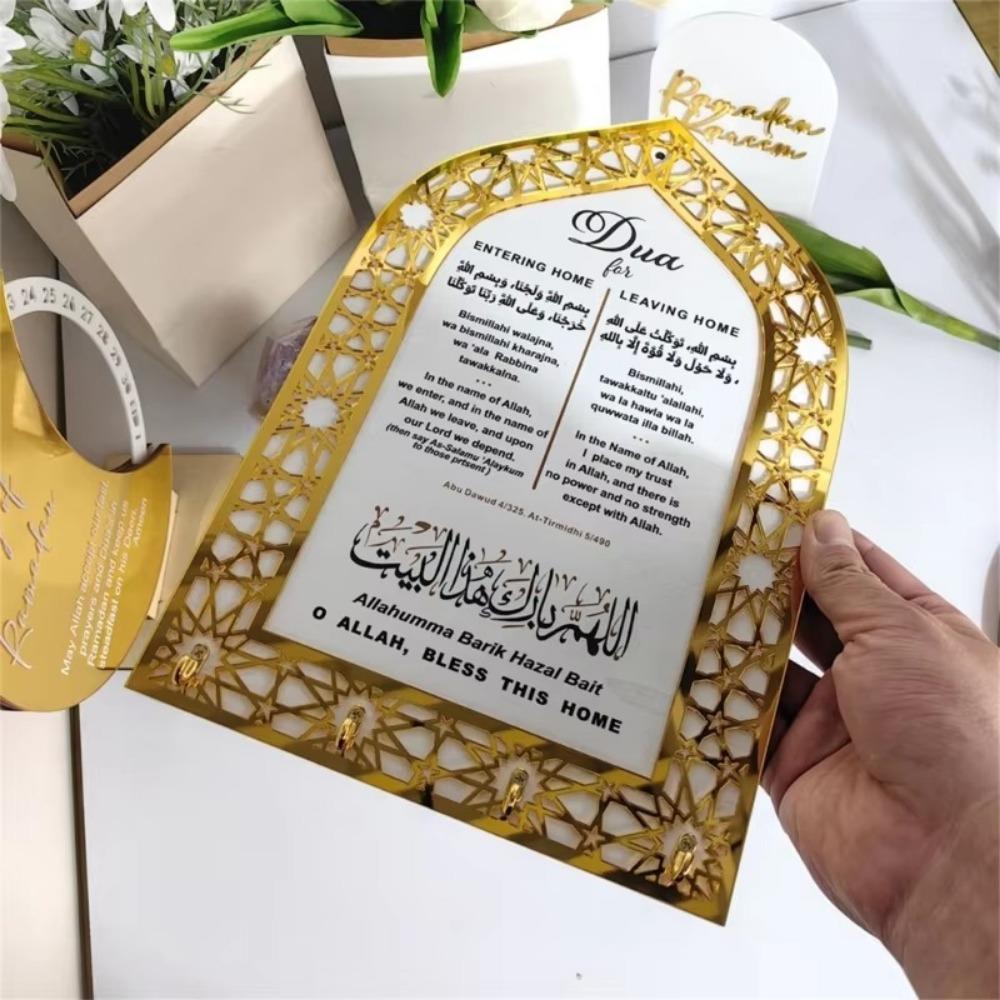 Ramadan
Kareem
Dua
for
ENTERING HOME
بِسْمِ اللَّهِ وَلَجْنَا، وَبِسْمِ اللَّهِ
خَرَجْنَا، وَعَلَى اللَّهِ رَبِّنَا تَوَكَّلْنَا
Bismillahi walajna,
wa bismillahi kharajna,
wa 'ala Rabbina
tawakkalna.
• • •
In the name of Allah,
we enter, and in the name of
Allah we leave, and upon
our Lord we depend.
(then say As-Salamu 'Alaykum
to those prtsent)
LEAVING HOME
بِسْمِ اللهِ، تَوَكَّلْتُ عَلَى اللهِ
، وَلَا حَوْلَ وَلَا قُوَّةَ إِلَّا بِاللهِ
Bismillahi,
tawakkaltu 'alallahi,
wa la hawla wa la
quwwata illa billah.
• • •
In the Name of Allah,
I place my trust
in Allah, and there is
no power and no strength
except with Allah.
Abu Dawud 4/325, At-Tirmidhi 5/490
اللهم بارك هذا البيت
Allahumma Barik Hazal Bait
O ALLAH, BLESS THIS HOME
24 25 26 27 28 29 30
Ramadan
May Allah accept our fast,
prayers and Duas in
Ramadan and keep us
steadfast on his Deen.
Ameen